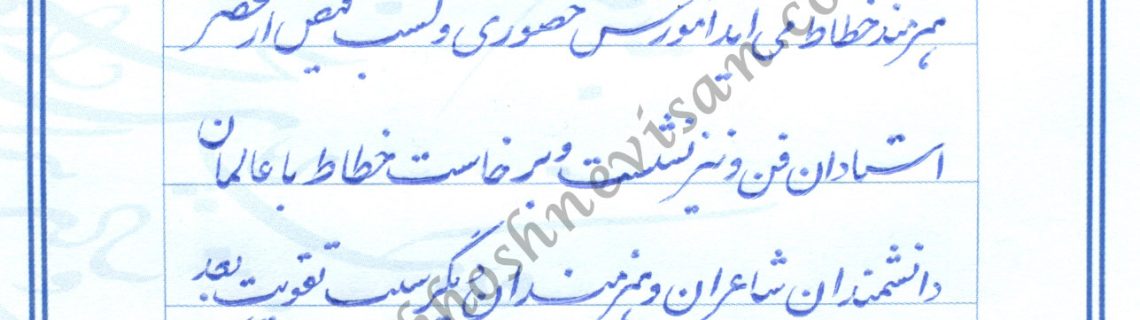 هنرمند خطاط می آید آموزش حضوری و کسب فیض از محضر
استادان فن و نیز نشست و برخاست خطاط با عالمان
دانشمندان شاعران و هنرمندان دیگر سبب تقویت بعد
khoshnevisan.co